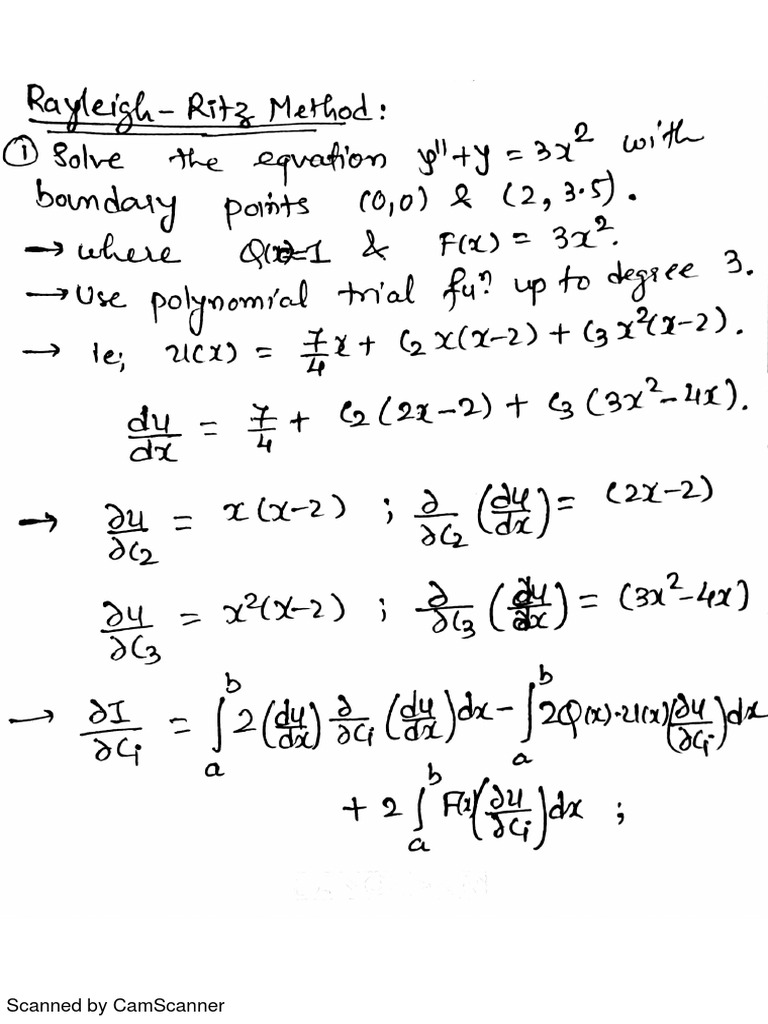 Rayleigh - Ritz Method:
① Solve the equation y'' + y = 3x² with
boundary points (0,0) & (2, 3.5).
→ where Q(x)=1 & F(x) = 3x².
→ Use polynomial trial fuⁿ up to degree 3.
→ ie; u(x) = 7/4 x + C₂ x(x-2) + C₃ x²(x-2).
du/dx = 7/4 + C₂ (2x-2) + C₃ (3x²-4x).
→ ∂u/∂C₂ = x(x-2) ; ∂/∂C₂ (du/dx) = (2x-2)
∂u/∂C₃ = x²(x-2) ; ∂/∂C₃ (du/dx) = (3x²-4x)
→ ∂I/∂Cᵢ = ∫ₐᵇ 2(du/dx) ∂/∂Cᵢ (du/dx) dx - ∫ₐᵇ 2Q(x)·u(x)(∂u/∂Cᵢ) dx
+ 2 ∫ₐᵇ F(x)(∂u/∂Cᵢ) dx ;
Scanned by CamScanner